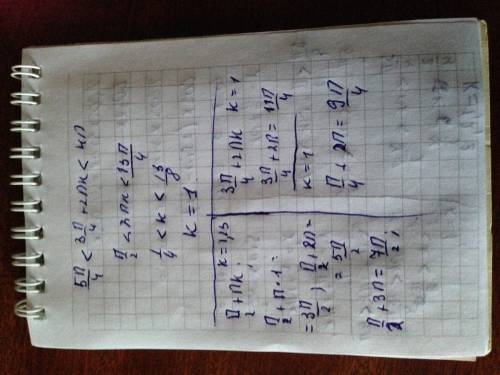 5π/4 < 3π/4 + 2πk < 4π
π/2 < 2πk < 13π/4
1/4 < k < 13/8
k = 1.
k = 1,2,3
π/2 + πk;
π/2 + π·1 =
= 3π/2; π/2 + 2π =
= 5π/2
π/2 + 3π = 7π/2;
3π/4 + 2πk k = 1
3π/4 + 2π = 11π/4
k = 1
π/4 + 2π = 9π/4